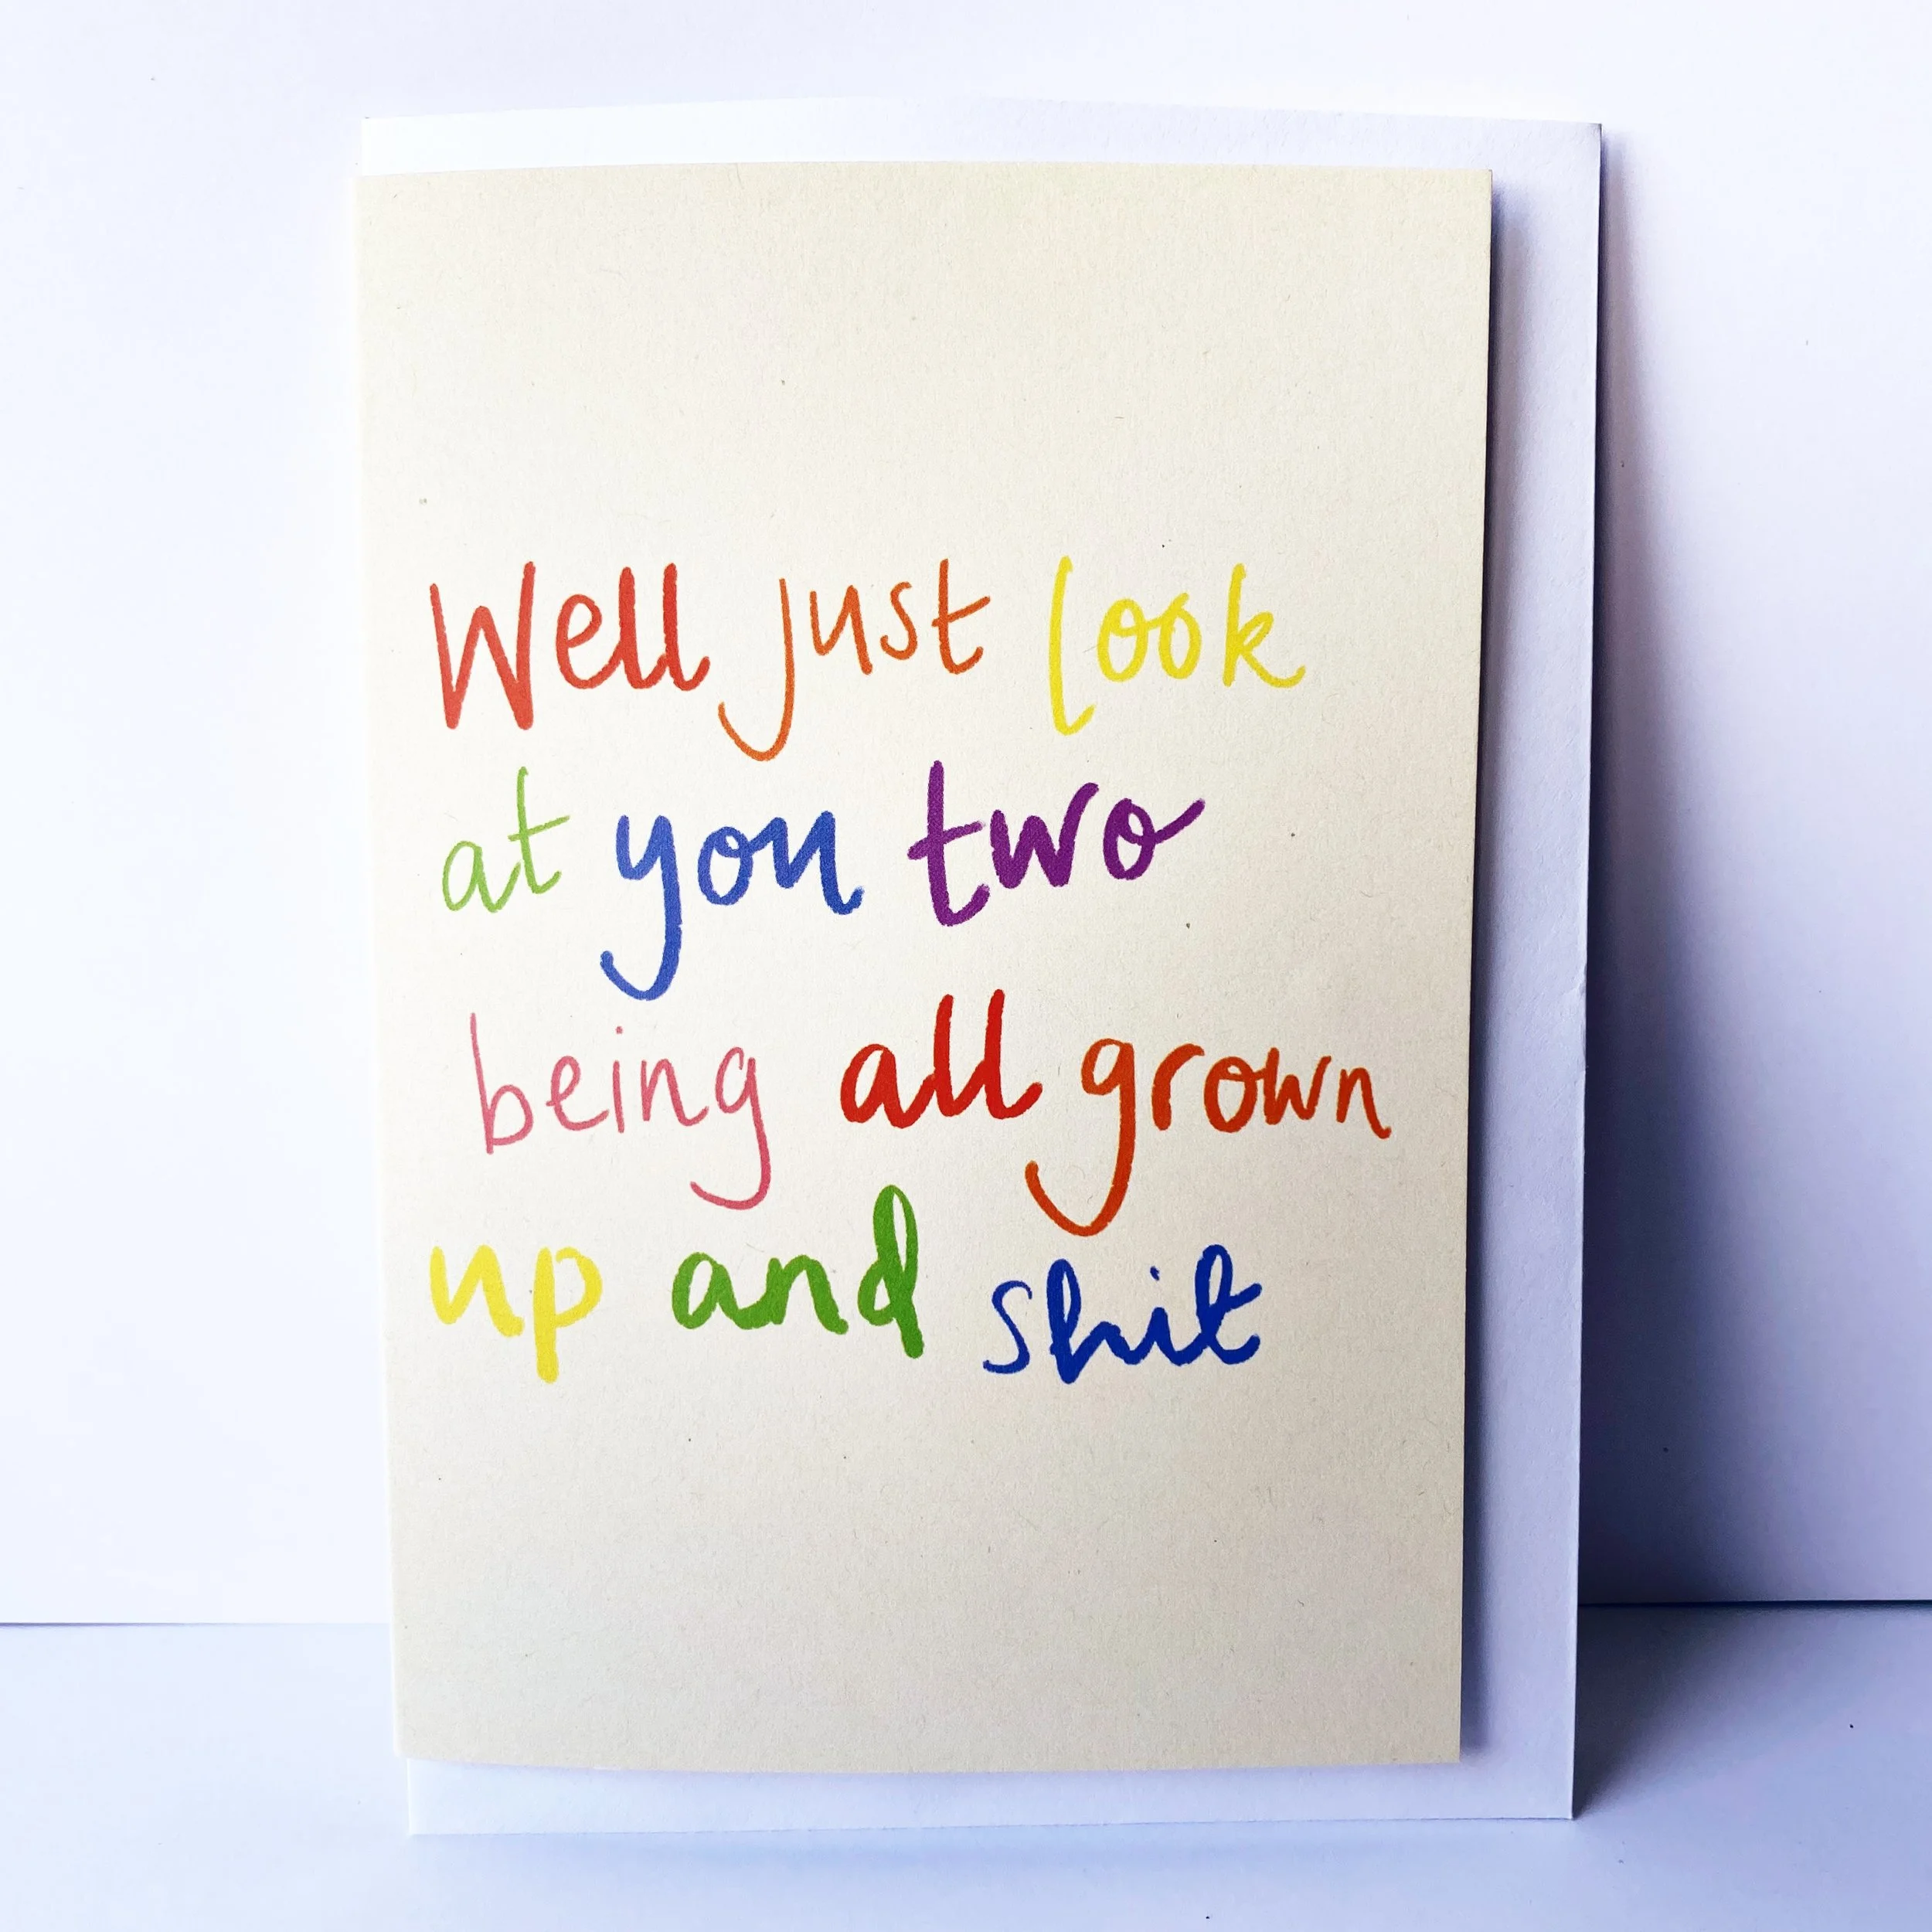 Well just look
at you two
being all grown
up and shit